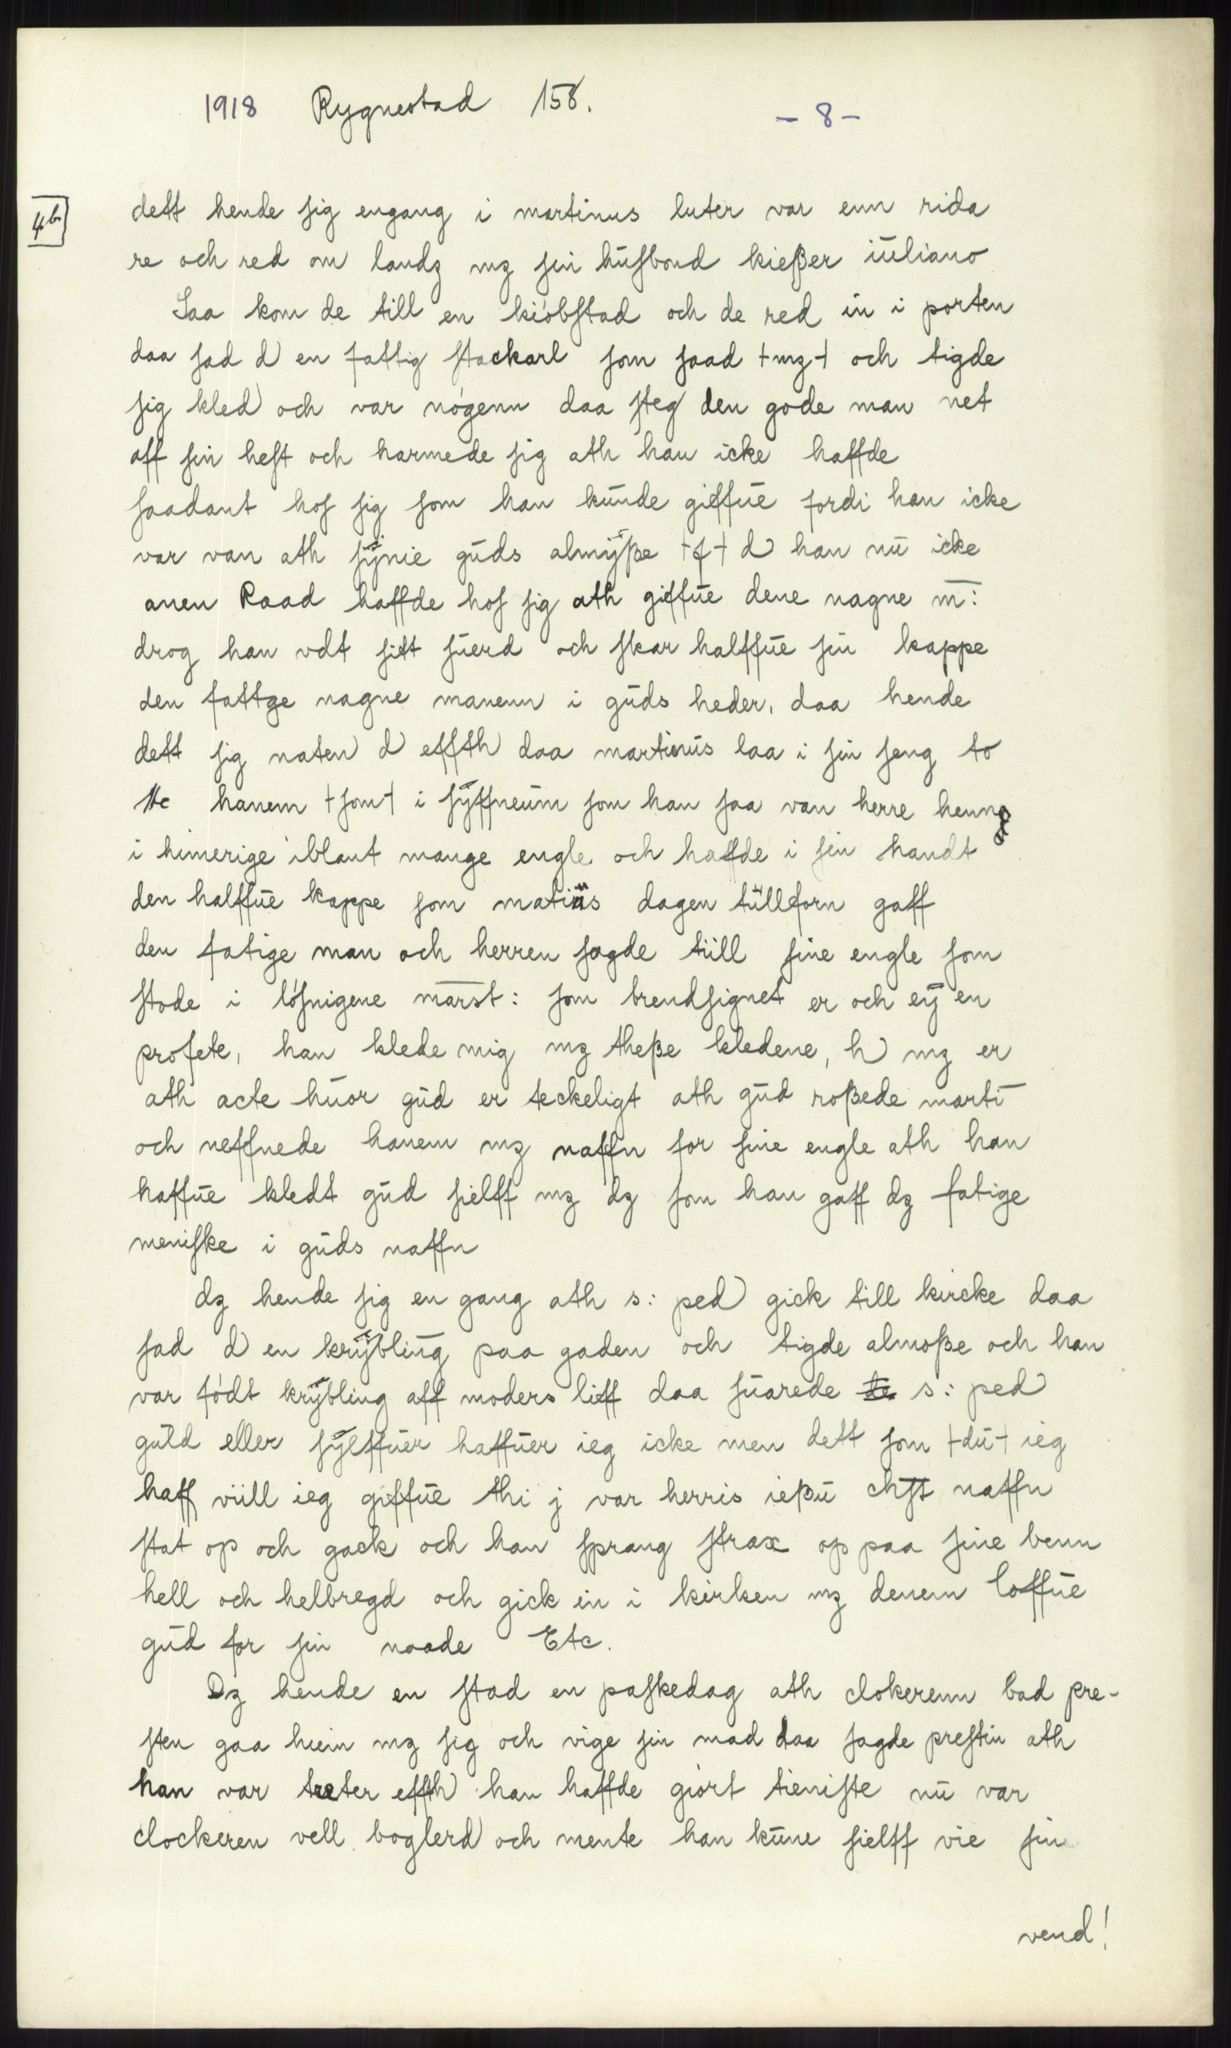 1918 Rygnestad 158.
- 8 -
4b
dett hende sig engang i martinus luter var enn rida
re och red om landz mz sin husbond kießer iuliano
Saa kom de till en kióbstad och de red in i porten
daa sad d en fattig stackarl som saad +mz+ och tigde
sig kled och var nógenn daa steg den gode man net
aff sin hest och harmede sig ath han icke haffde
saadant hos sig som han kunde giffue fordi han icke
var van ath synie guds almyße +f+ d han nu icke
anen Raad haffde hos sig ath giffue dene nagne m̅:
drog han vdt sitt suerd och skar halffue sin kappe
den fattge nagne manenn i guds heder, daa hende
dett sig naten d effth daa martinus laa i sin seng to
tte hanem +som+ i syffneum som han saa van herre heung
i himerige iblant mange engle och haffde i sin handt
den halffue kappe som matius dagen tillforn gaff
den fatige man och herren sagde till sine engle som
stode i lósnigene marst: som brendsignet er och ey en
profete, han klede mig mz theße kledene, h mz er
ath acte huor gud er teckeligt ath gud roßede marti̅
och neffnede hanem mz naffn for sine engle ath han
haffue kledt gud sielff mz dz som han gaff dz fatige
meniske i guds naffn
dz hende sig en gang ath s: ped gick till kircke daa
sad d en krybling paa gaden och tigde almoße och han
var fódt krybling aff moders lieff daa suarede de s: ped
guld eller sylffuer haffuer ieg icke men dett som +du+ ieg
haff viill ieg giffue thi j var herris ießu chst naffn
stat op och gack och han sprang strax op paa sine benn
hell och helbregd och gick in i kirken mz denem loffue
gud for sin naade Etc.
Dz hende en stad en paskedag ath clokerenn bad pre-
sten gaa hiem mz sig och vige sin mad daa sagde prestin ath
han var treter effth han haffde giórt tieniste nu var
clockeren vell boglerd och mente han kune sielff vie sin
vend!